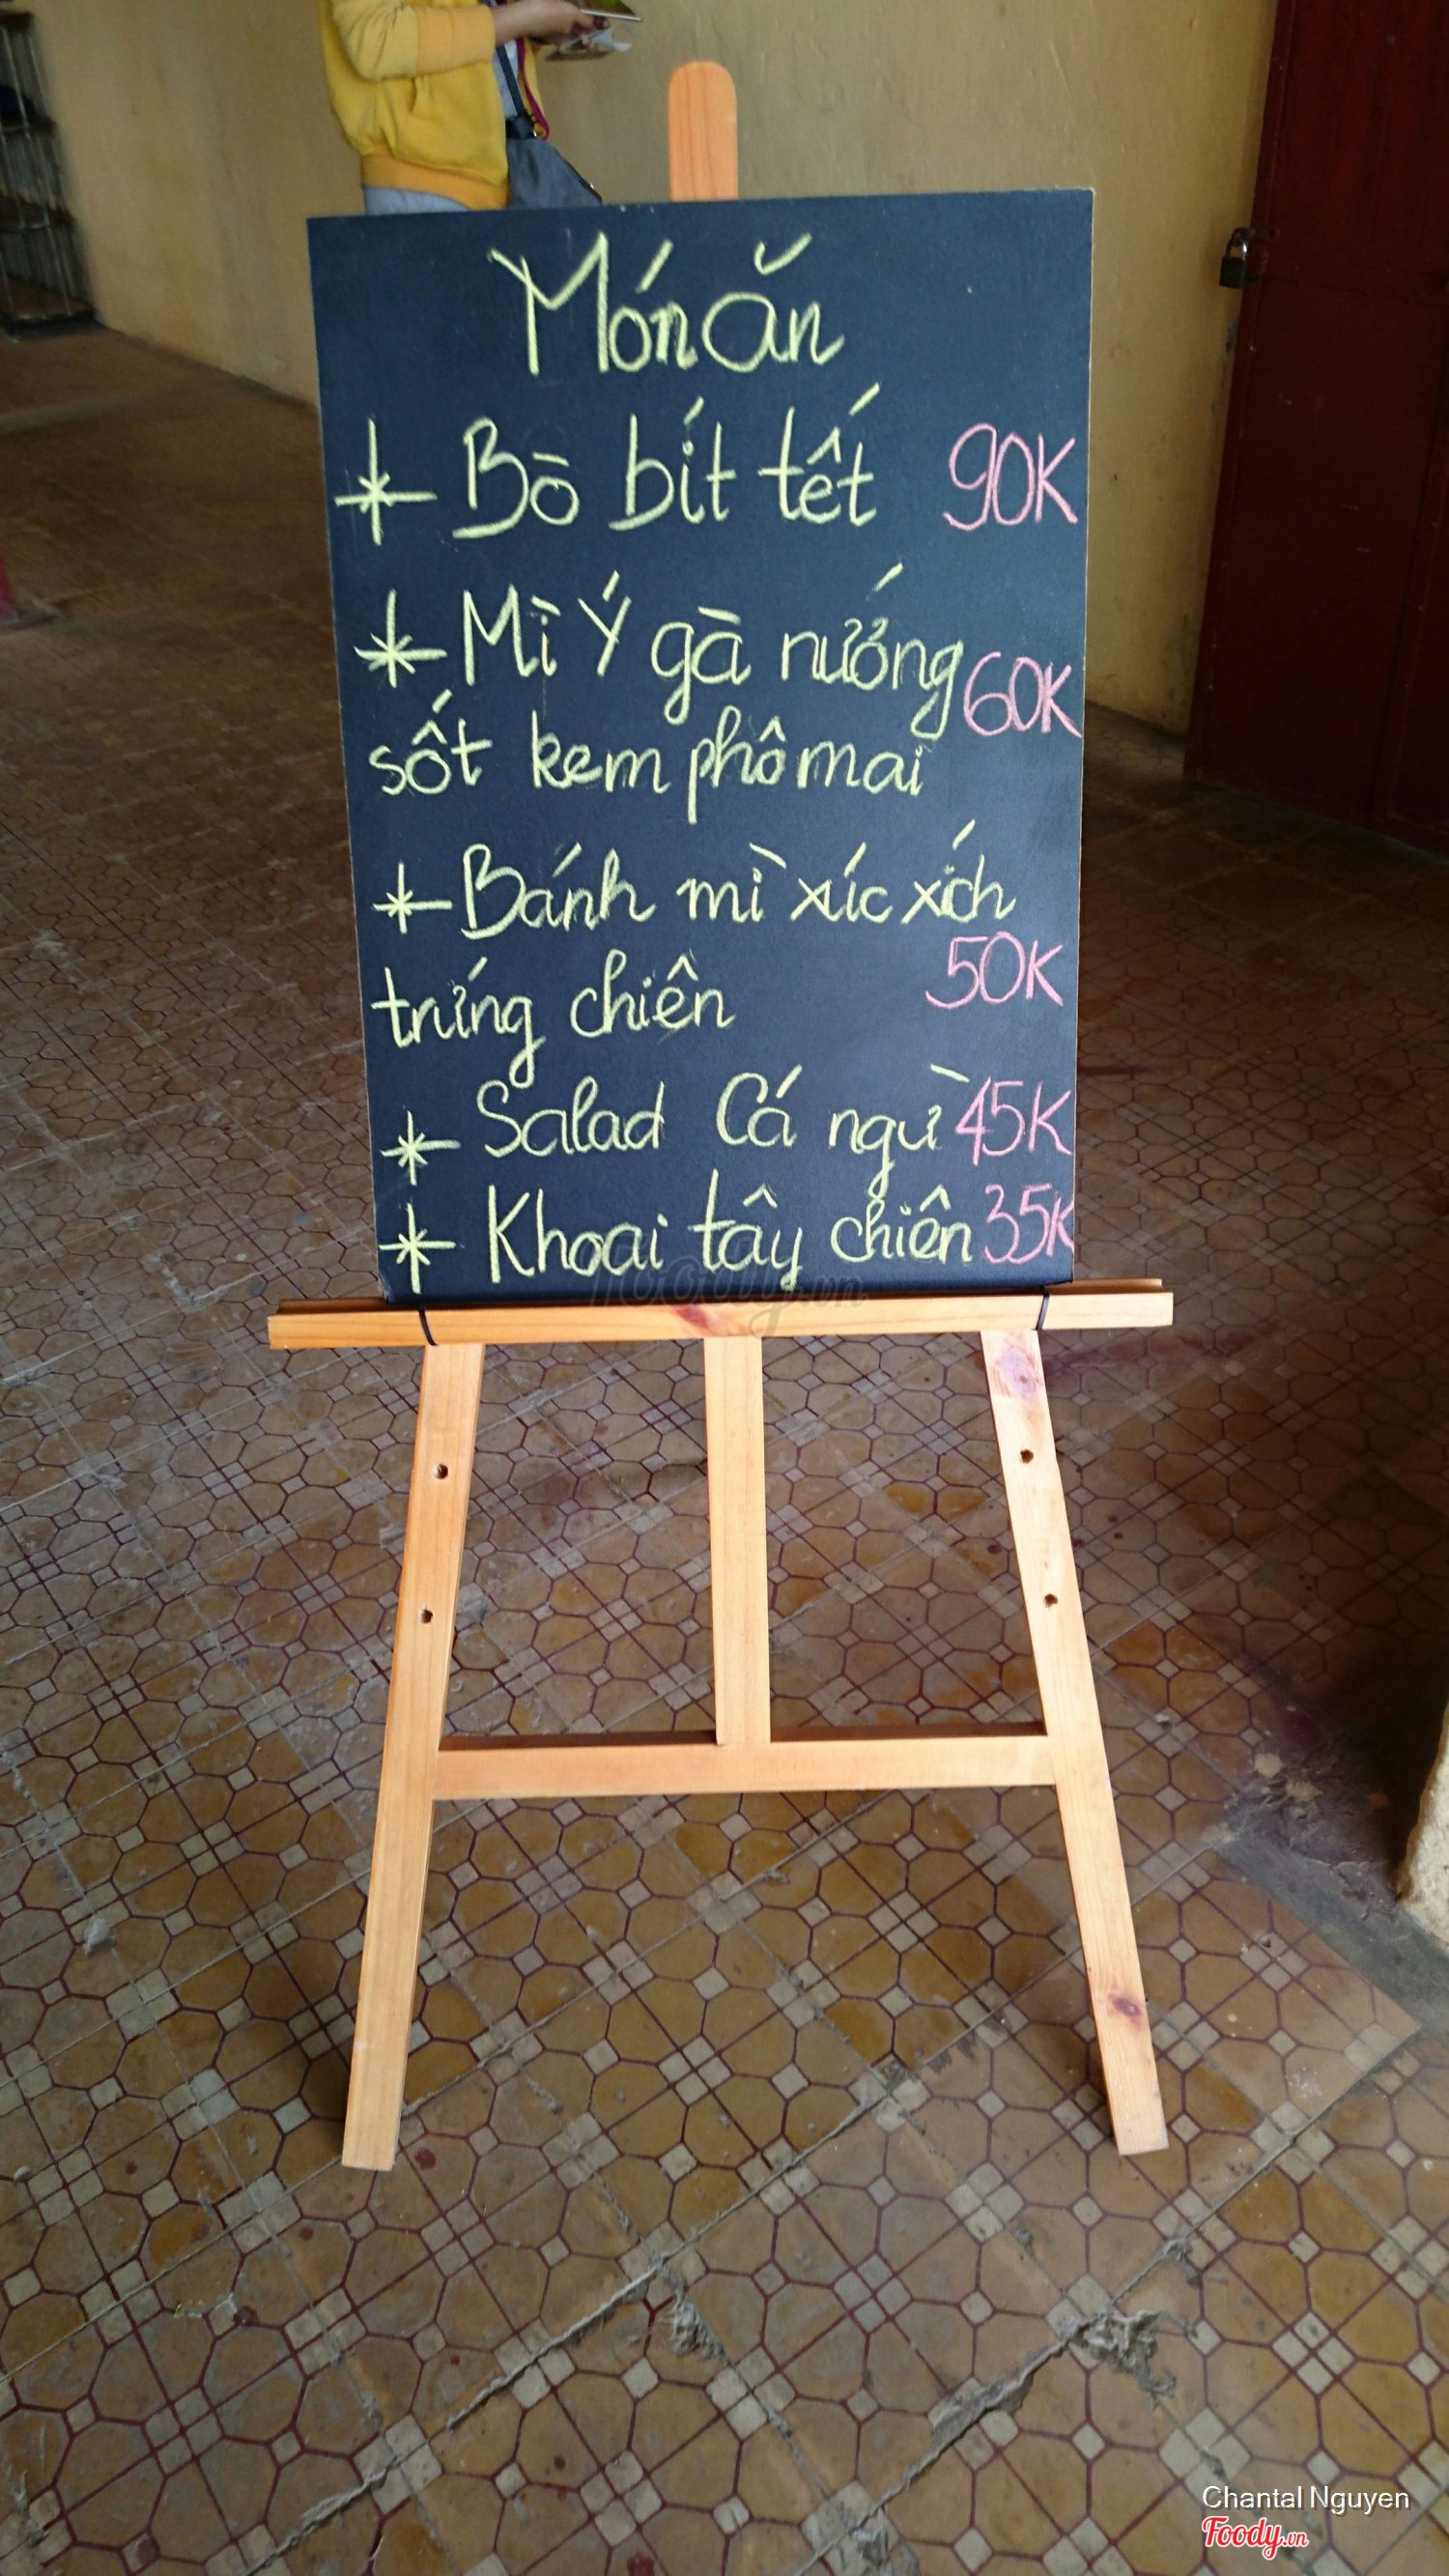 Món ăn
* Bò bít tết 90K
* Mì Ý gà nướng 60K
sốt kem phômai
* Bánh mì xúc xích
trứng chiên 50K
* Salad Cá ngừ 45K
* Khoai tây chiên 35K
Foody.vn
Chantal Nguyen
Foody.vn